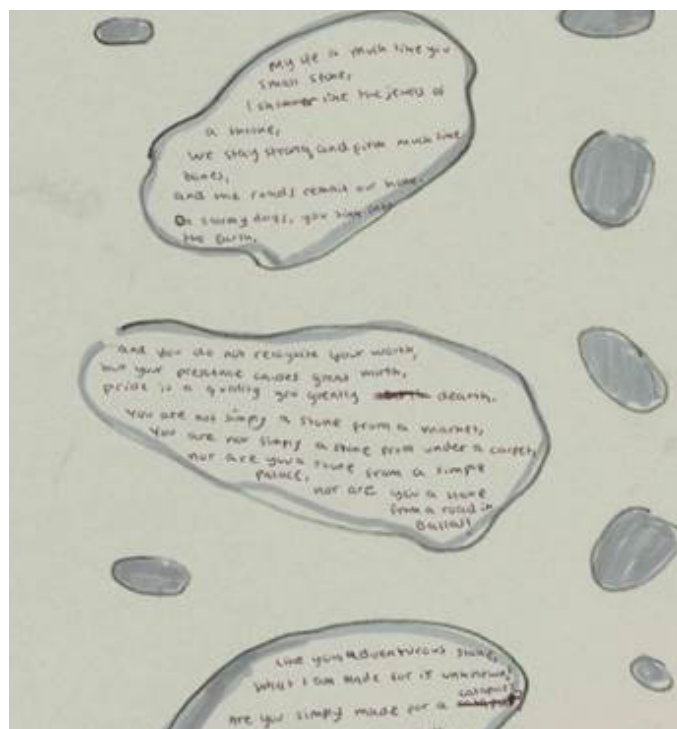 My life is much like you
small stone,
I shimmer like the jewels of
a throne,
we stay strong and firm much like
bones,
and the roads remain our home.
On stormy days, you sink into
the Earth,
and you do not recognise your worth,
but your presence causes great mirth,
pride is a quality you greatly dearth.
You are not simply a stone from a market,
You are nor simply a stone from under a carpet,
nor are you a stone from a simple
palace,
nor are you a stone
from a road in
Dallas!
Like you adventurous stone,
What I am made for is unknown,
Are you simply made for a catapult